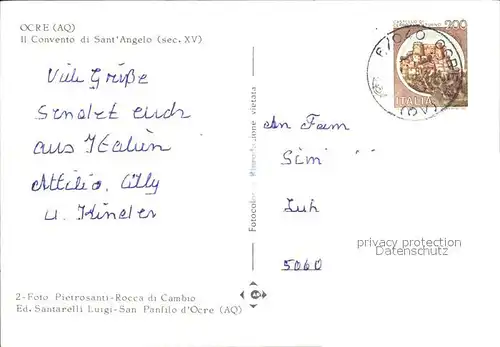 OCRE (AQ)
Il Convento di Sant'Angelo (sec. XV)
Viele Grüße
sendet euch
aus Italien
Attilio, Elly
u. Kinder
2-Foto Pietrosanti-Rocca di Cambio
Ed. Santarelli Luigi-San Panfilo d'Ocre (AQ)
Fotocolor - Riproduzione vietata
200
ITALIA
67040 OCRE
(AQ)
An Fam
5060
privacy protection
Datenschutz